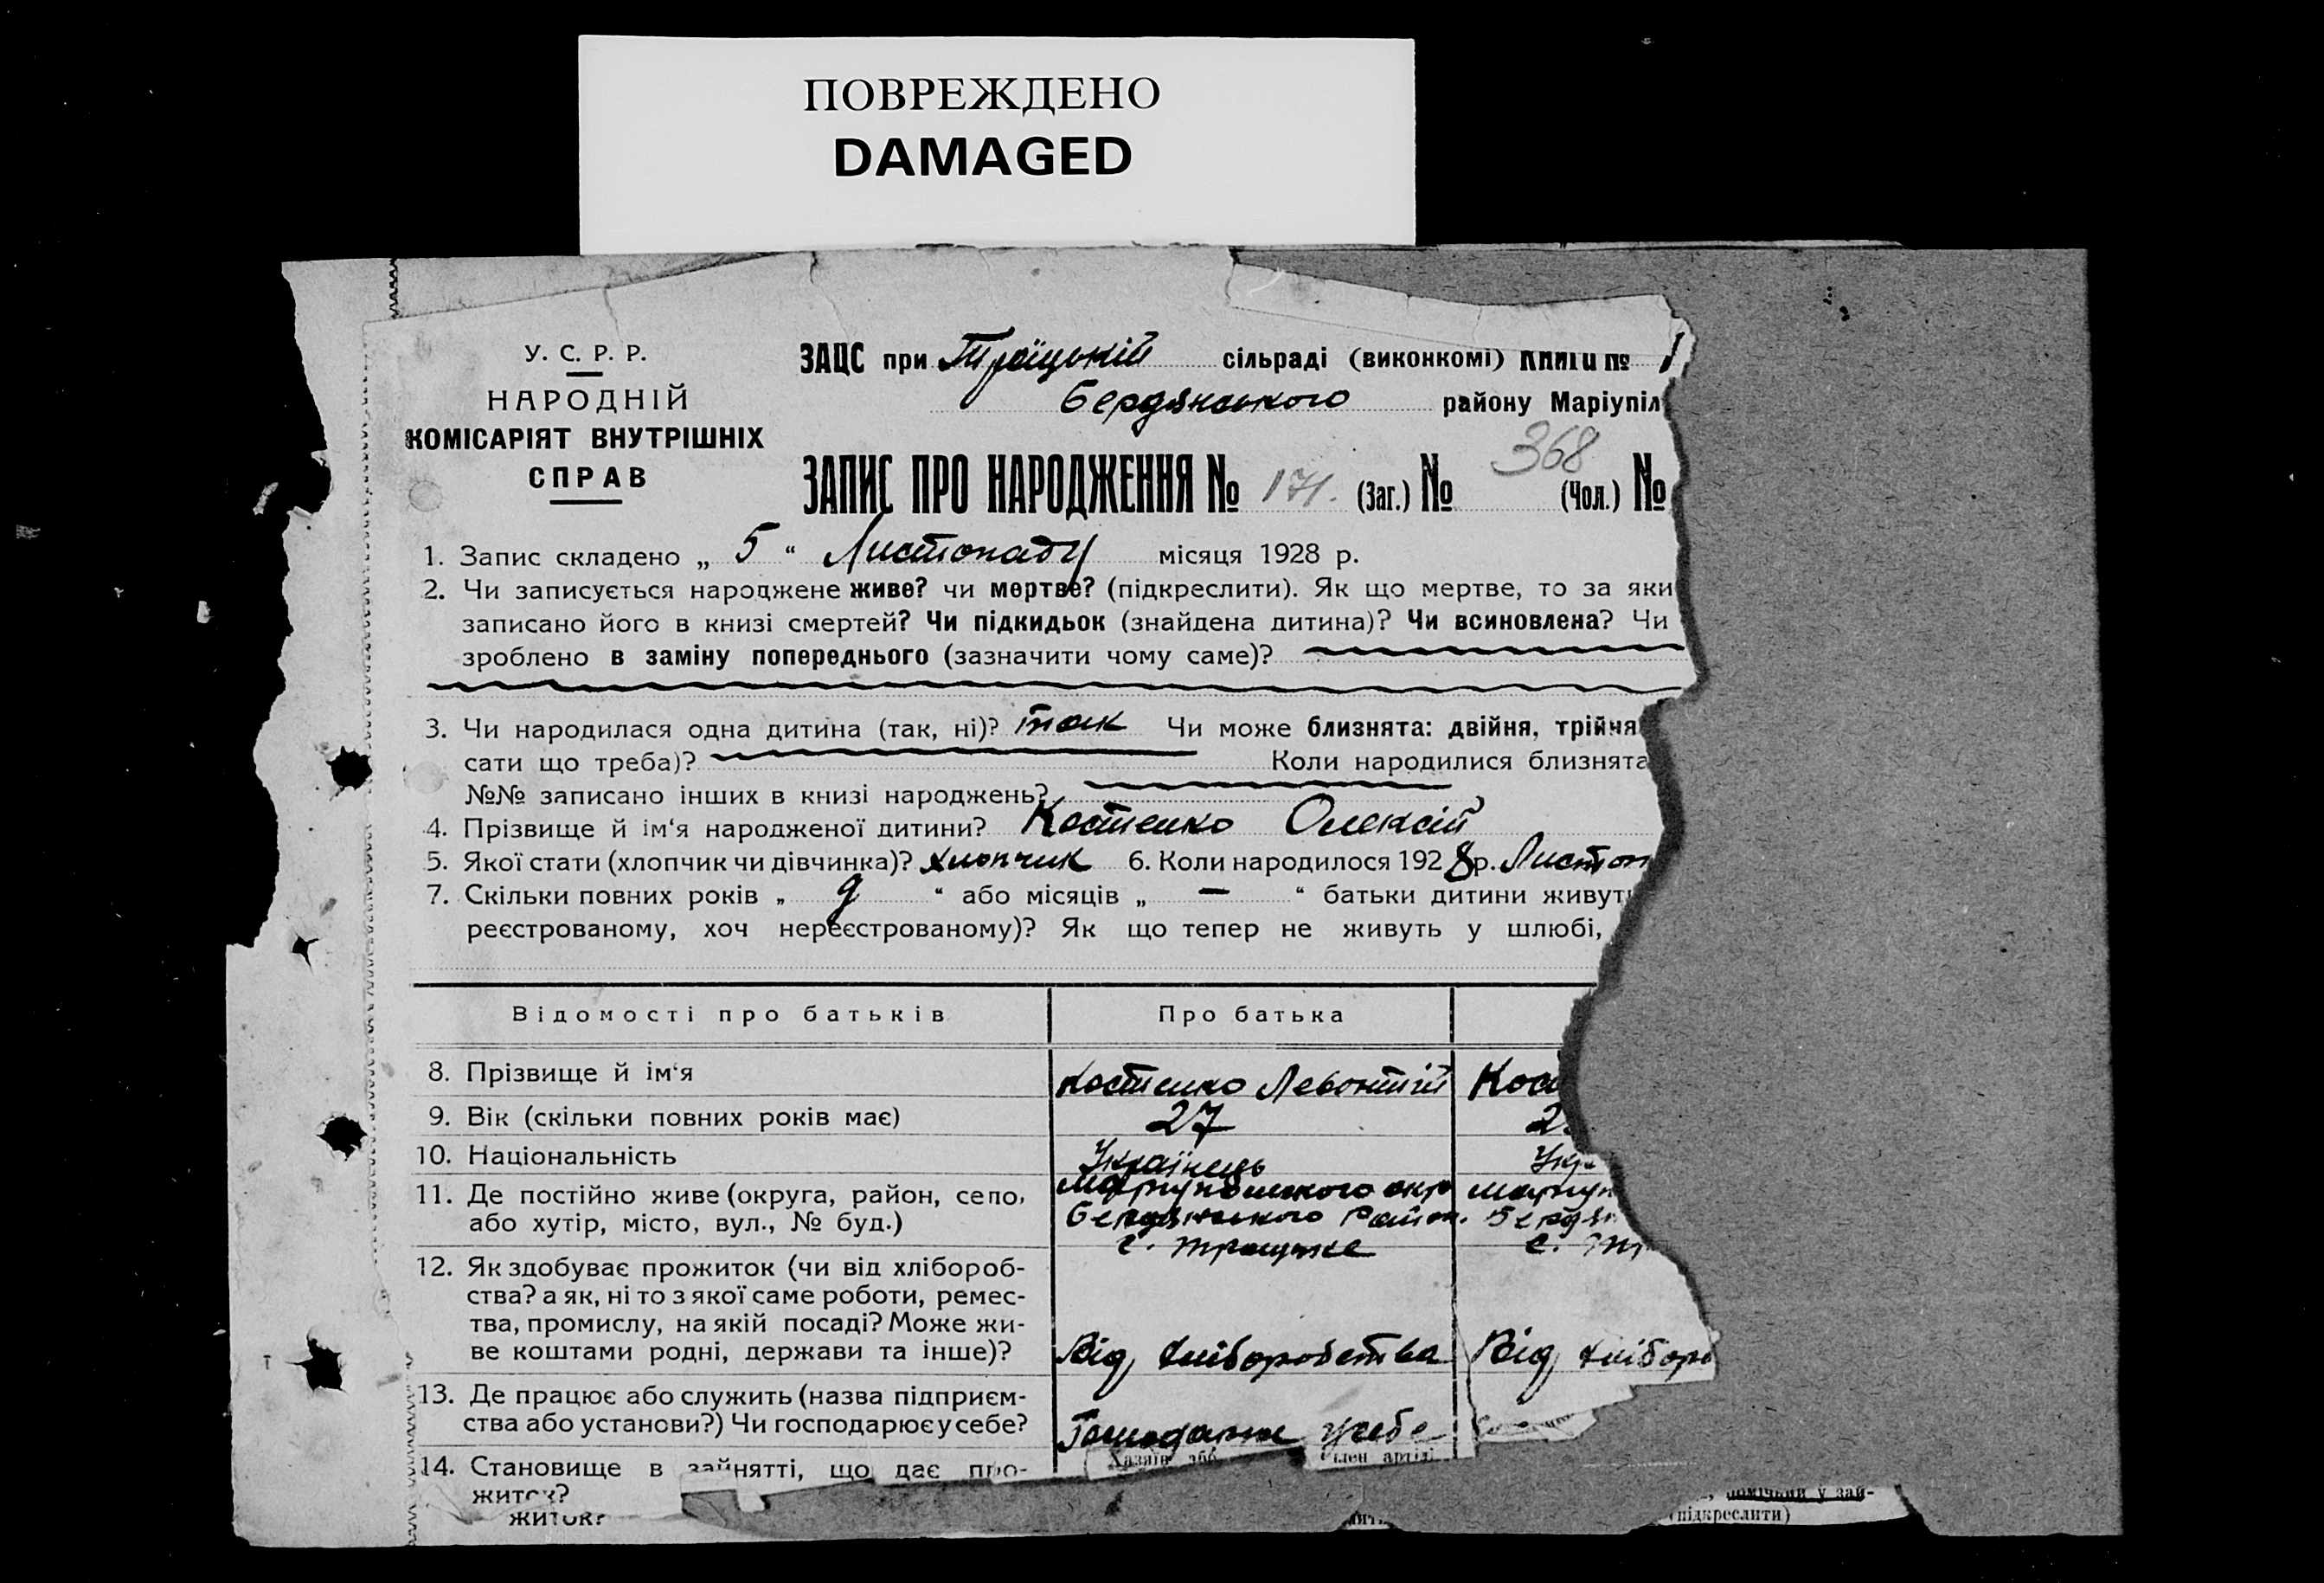 ПОВРЕЖДЕНО
DAMAGED
У. С. Р. Р.
НАРОДНІЙ
КОМІСАРІЯТ ВНУТРІШНІХ
СПРАВ
ЗАЦС при Троїцькій сільраді (виконкомі) Книги № 1
Бердянського району Маріупіл
368
ЗАПИС ПРО НАРОДЖЕННЯ № 171. (Заг.) № (Чол.) №
1. Запис складено „ 5 “ Листопаду місяця 1928 р.
2. Чи записується народжене живе? чи мертве? (підкреслити). Як що мертве, то за яки
записано його в книзі смертей? Чи підкидьок (знайдена дитина)? Чи всиновлена? Чи
зроблено в заміну попереднього (зазначити чому саме)?
3. Чи народилася одна дитина (так, ні)? так Чи може близнята: двійня, трійня
сати що треба)? Коли народилися близнята
№№ записано інших в книзі народжень?
4. Прізвище й ім‘я народженої дитини? Костенко Олексій
5. Якої стати (хлопчик чи дівчинка)? хлопчик 6. Коли народилося 1928 р. Листоп
7. Скільки повних років „ 9 “ або місяців „ — “ батьки дитини живут
реєстрованому, хоч нереєстрованому)? Як що тепер не живуть у шлюбі,
Відомості про батьків Про батька
8. Прізвище й ім‘я Костенко Левонтій Кос
9. Вік (скільки повних років має) 27 2
10. Національність Українець Укр
11. Де постійно живе (округа, район, село, Маріупольського окр Маріуп
або хутір, місто, вул., № буд.) Бердянського Район. Бердян
с. Троцьке с. Тр
12. Як здобуває прожиток (чи від хлібороб-
ства? а як, ні то з якої саме роботи, ремес-
тва, промислу, на якій посаді? Може жи-
ве коштами родні, держави та інше)? Від хліборобства Від хлібор
13. Де працює або служить (назва підприєм-
ства або установи?) Чи господарює у себе? Господарює у себе
14. Становище в зайнятті, що дає про- Хазяїн або член артілі
житок?
житок?
помічний у зай-
(підкреслити)